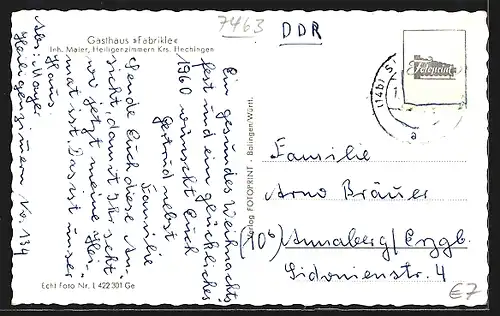 7463
DDR
Gasthaus »Fabrikle«
Inh. Maier, Heiligenzimmern Krs. Hechingen
Ein gesundes Weihnachts
fest und ein glückliches
1960 wünscht Euch
Gertrud nebst
Familie
Sende Euch diese An-
sicht, damit Ihr seht
wo jetzt meine Hei-
mat ist. Das ist unser
Haus.
Abs: Mayer
Heiligenzimmern No. 134
Echt Foto Nr. L 422 301 Ge
Verlag FOTOPRINT - Balingen-Württ.
Fotoprint
(14b)
Familie
Arno Bräuer
(10b) Annaberg/Erzgb.
Sidonienstr. 4
€7